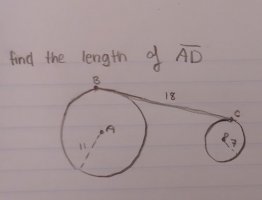 find the length of AD
B
18
C
A
11
7